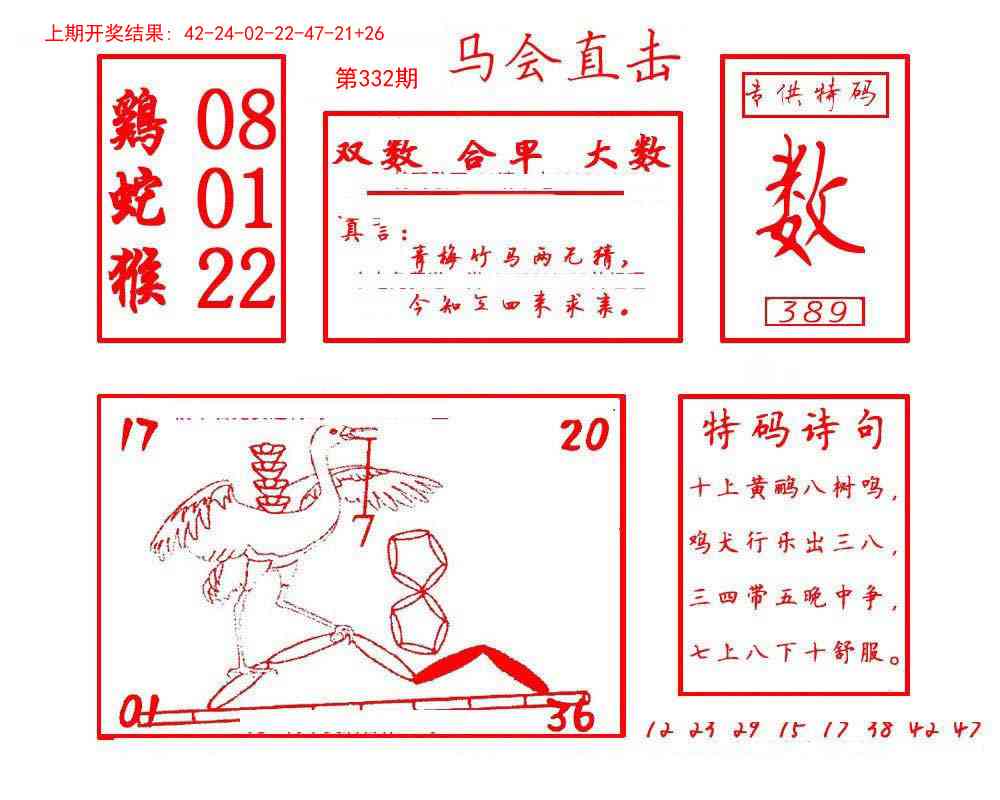 上期开奖结果: 42-24-02-22-47-21+26
第332期
马会直击
鷄 08
蛇 01
猴 22
双数 合单 大数
真言:
青梅竹马两无猜,
今知立四来求亲。
专供特码
数
389
17
20
7
01
36
特码诗句
十上黄鹂八树鸣,
鸡犬行乐出三八,
三四带五晚中争,
七上八下十舒服。
12 23 29 15 17 38 42 47